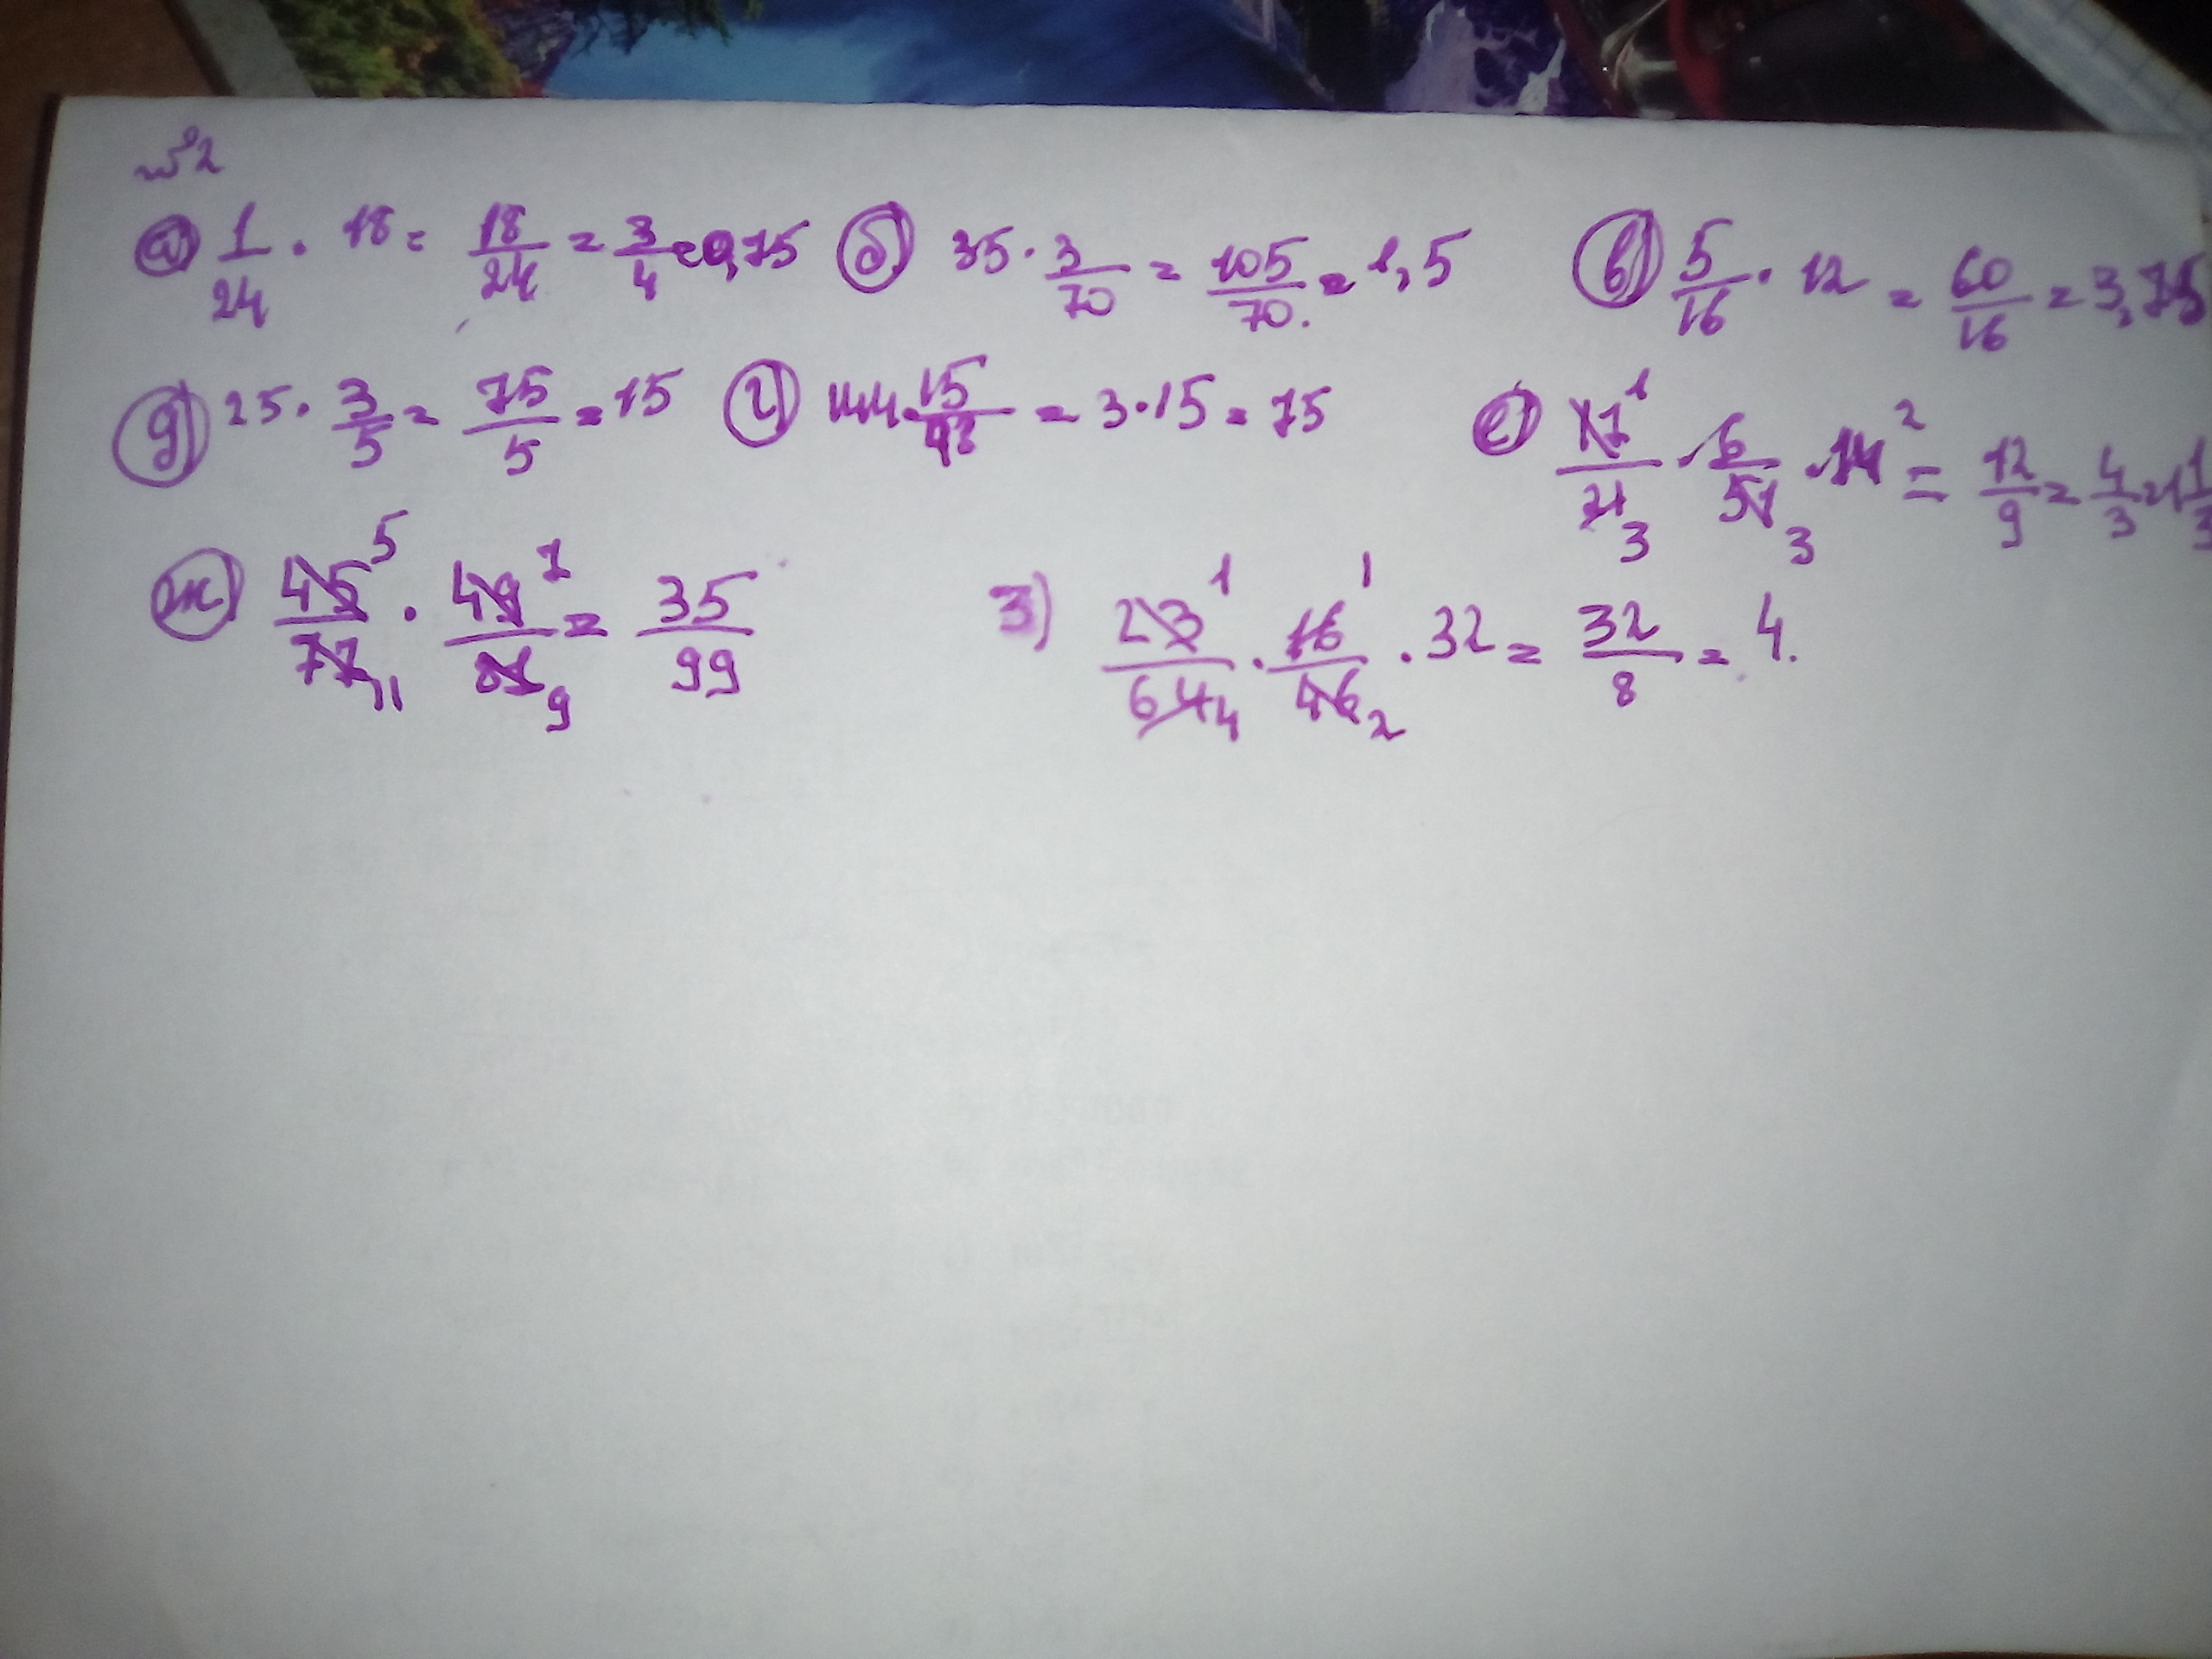 №2
а) 1/24 · 18 = 18/24 = 3/4 = 0,75 б) 35 · 3/70 = 105/70. = 1,5 в) 5/16 · 12 = 60/16 = 3,75
д) 25 · 3/5 = 75/5 = 15 г) · 15/48 = 3 · 15 = 75 е) 17 1/21 3 · 6/51 3 · 14 2 = 12/9 = 4/3 = 1 1/3
ж) 45 5/77 11 · 49 7/81 9 = 35/99 з) 23 1/64 4 · 16 1/46 2 · 32 = 32/8 = 4.